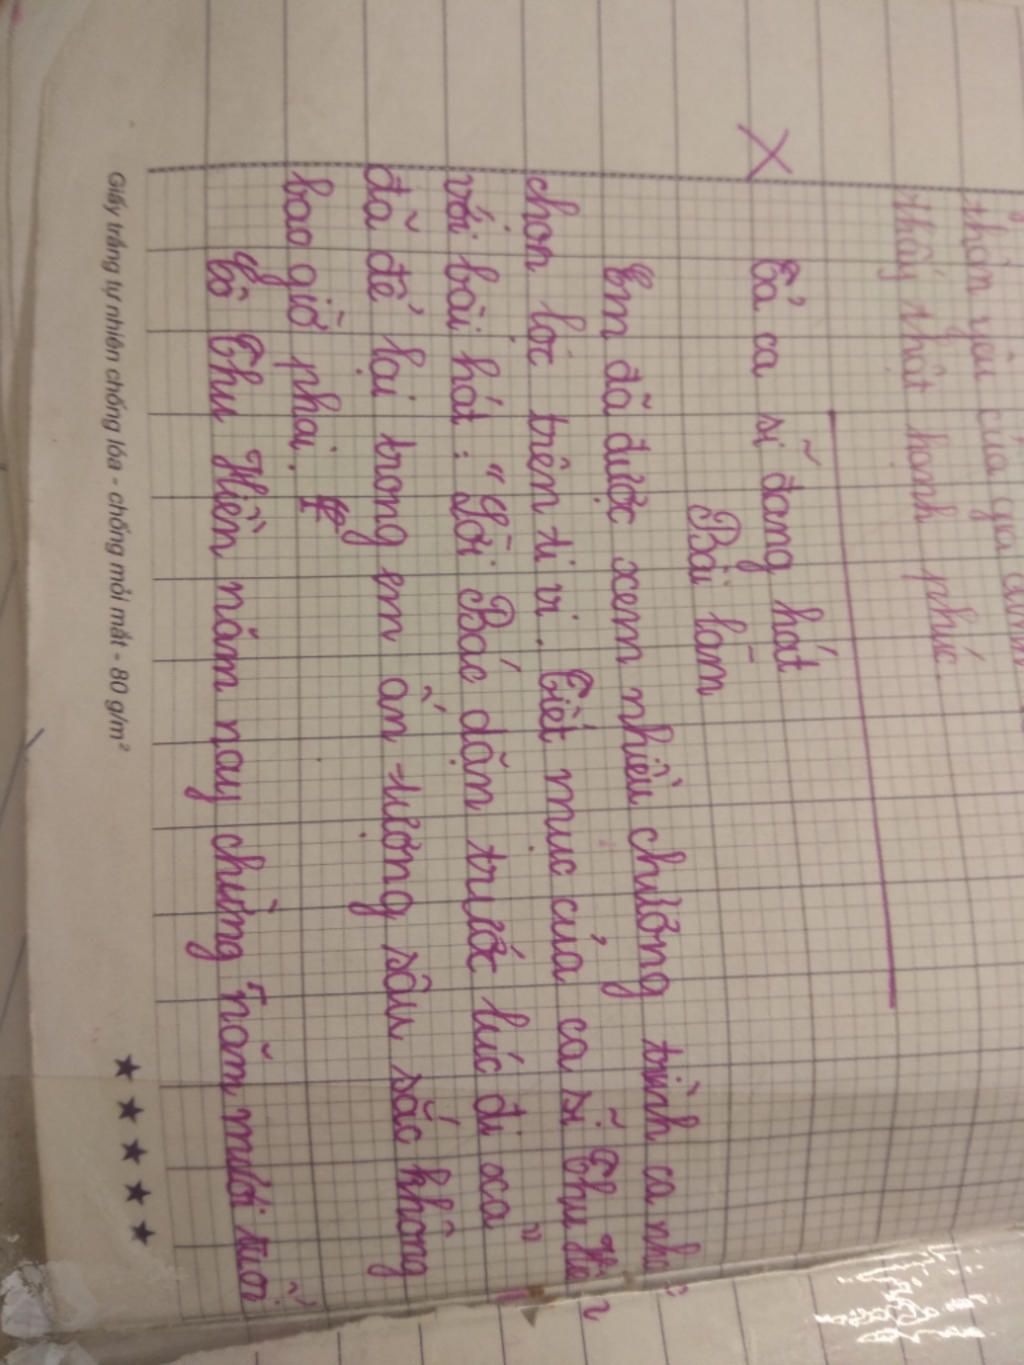 thân yêu của gia đình
thấy thật hạnh phúc.
X Tả ca sĩ đang hát
Bài làm
Em đã được xem nhiều chương trình ca nhạc
chọn lọc trên ti vi. Tiết mục của ca sĩ Thu Hiền
với bài hát: "Lời Bác dặn trước lúc đi xa"
đã để lại trong em ấn tượng sâu sắc không
bao giờ phai.
Cô Thu Hiền năm nay chừng năm mươi tuổi
Giấy trắng tự nhiên chống lóa - chống mỏi mắt - 80 g/m²